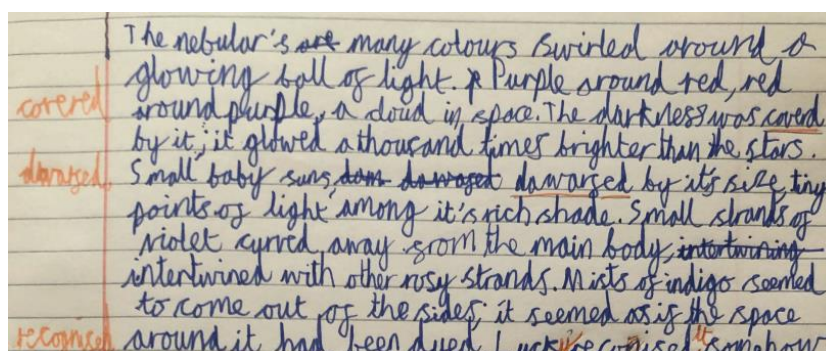 The nebular's are many colours swirled around a
glowing ball of light. Purple around red, red
covered around purple, a cloud in space. The darkness was coverd
by it; it glowed a thousand times brighter than the stars.
dawarfed Small baby suns, dawarfed by it's size, tiny
points of light among it's rich shade. Small strands of
violet curved away from the main body, intertwining
intertwined with other rosy strands. Mists of indigo seemed
to come out of the sides; it seemed as if the space
recognised around it had been dyed. I recognised it somehow